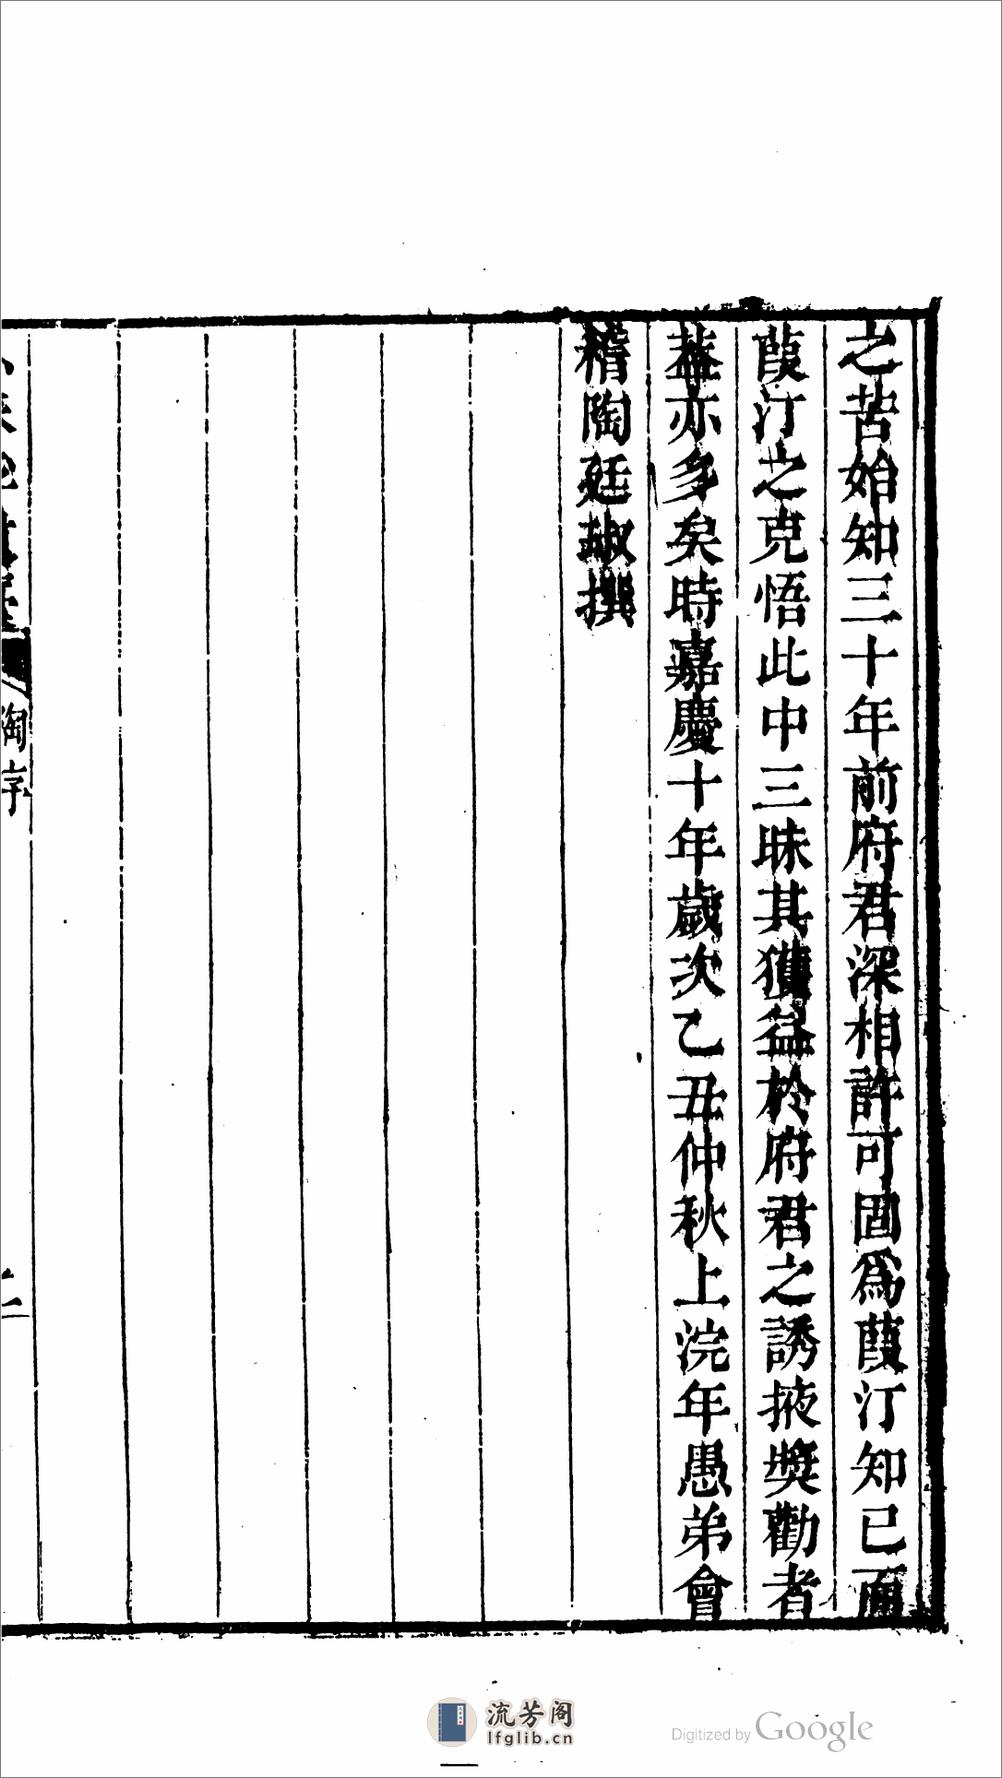 之苦始知三十年前府君深相許可固爲葭汀知已而
葭汀之克悟此中三昧其獲益於府君之誘掖奬勸者
葢亦多矣時嘉慶十年歲次乙丑仲秋上浣年愚弟會
稽陶廷琡撰
陶序
流芳阁
lfglib.cn
Digitized by Google